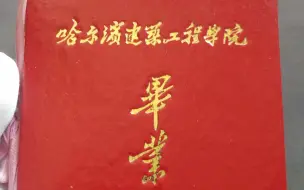 哈尔滨建筑工程学院
畢
業